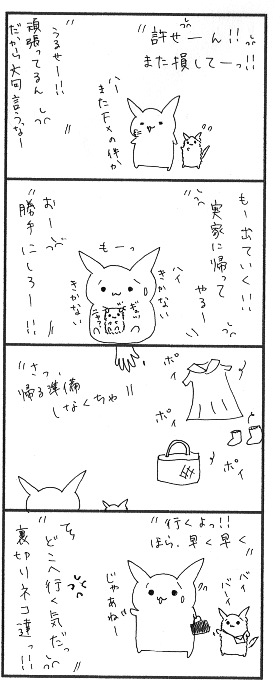 許せーん!!
また損してーっ!!
ハー
またFXの件か
うるせー!!
頑張ってるん
だから文句言うなー
もー出ていく!!
実家に帰って
やるー
もーっ
ハイ
きかない
きかない
ぎゅっ
おー
勝手にしろー!!
ポイ
ポイ
ポイ
さっ、
帰る準備
しなくちゃ
行くよっ!!
ほら、早く早く
バイ
バーイ
じゃあねー
てめ
どこへ行く気だっ
裏切りネコ達っ!!